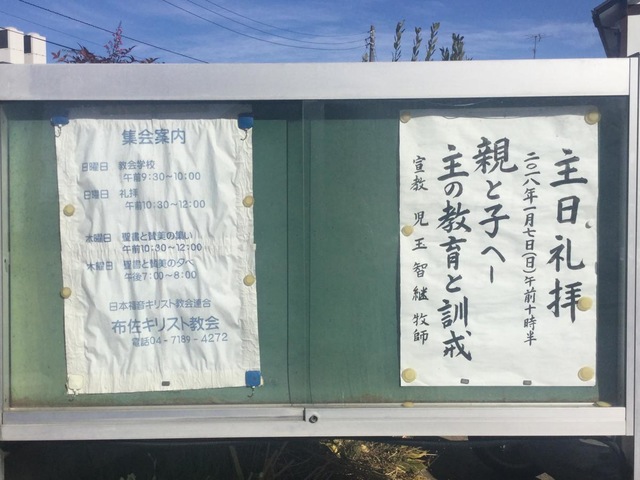 集会案内
日曜日 教会学校
午前9:30~10:00
日曜日 礼拝
午前10:30~12:00
木曜日 聖書と賛美の集い
午前10:30~12:00
木曜日 聖書と賛美の夕べ
午後7:00~8:00
日本福音キリスト教会連合
布佐キリスト教会
電話04-7189-4272
主日礼拝
二〇一八年一月七日(日)午前十時半
親と子へー
主の教育と訓戒
宣教 児玉智継牧師